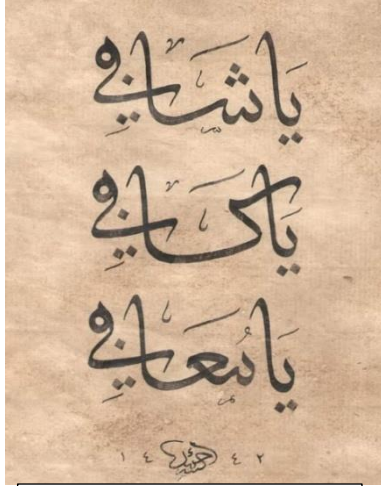 يَا شَافِي
يَا كَافِي
يَا مُعَافِي
١٤٤٢